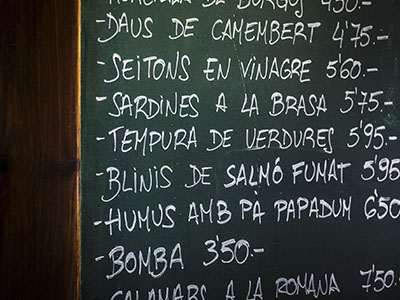 DE BURGOS 4'50.-
-DAUS DE CAMEMBERT 4'75.-
-SEITONS EN VINAGRE 5'60.-
-SARDINES A LA BRASA 5'75.-
-TEMPURA DE VERDURES 5'95.-
-BLINIS DE SALMÓ FUMAT 5'95
-HUMUS AMB PÀ PAPADUM 6'50
-BOMBA 3'50.-
CALAMARS A LA ROMANA 7'50.